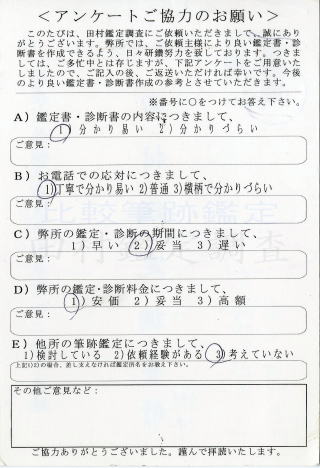 ＜アンケートご協力のお願い＞
このたびは、田村鑑定調査にご依頼いただきまして、誠にあり
がとうございます。弊所では、ご依頼主様により良い鑑定書・診
断書を作成できるよう、日々研鑽努力を致しております。つきま
しては、ご多忙中とは存じますが、下記アンケートをご用意いた
しましたので、ご記入の後、ご返送いただければ幸いです。今後
のより良い鑑定書・診断書作成の参考とさせていただきます。
※番号に○をつけてお答え下さい。
A）鑑定書・診断書の内容につきまして、
1)分かり易い 2)分かりづらい
ご意見：
B）お電話での応対につきまして、
1)丁寧で分かり易い 2)普通 3)横柄で分かりづらい
ご意見：
比較筆跡鑑定
C）弊所の鑑定・診断の期間につきまして、
1)早い 2)妥当 3)遅い
田村鑑定調査
ご意見：
D）弊所の鑑定・診断料金につきまして、
1)安価 2)妥当 3)高額
ご意見：
E）他所の筆跡鑑定につきまして、
1)検討している 2)依頼経験がある 3)考えていない
上記1)2)の場合、差し支えなければ鑑定所名をお教え下さい。
その他ご意見など：
ご協力ありがとうございました。謹んで拝読いたします。